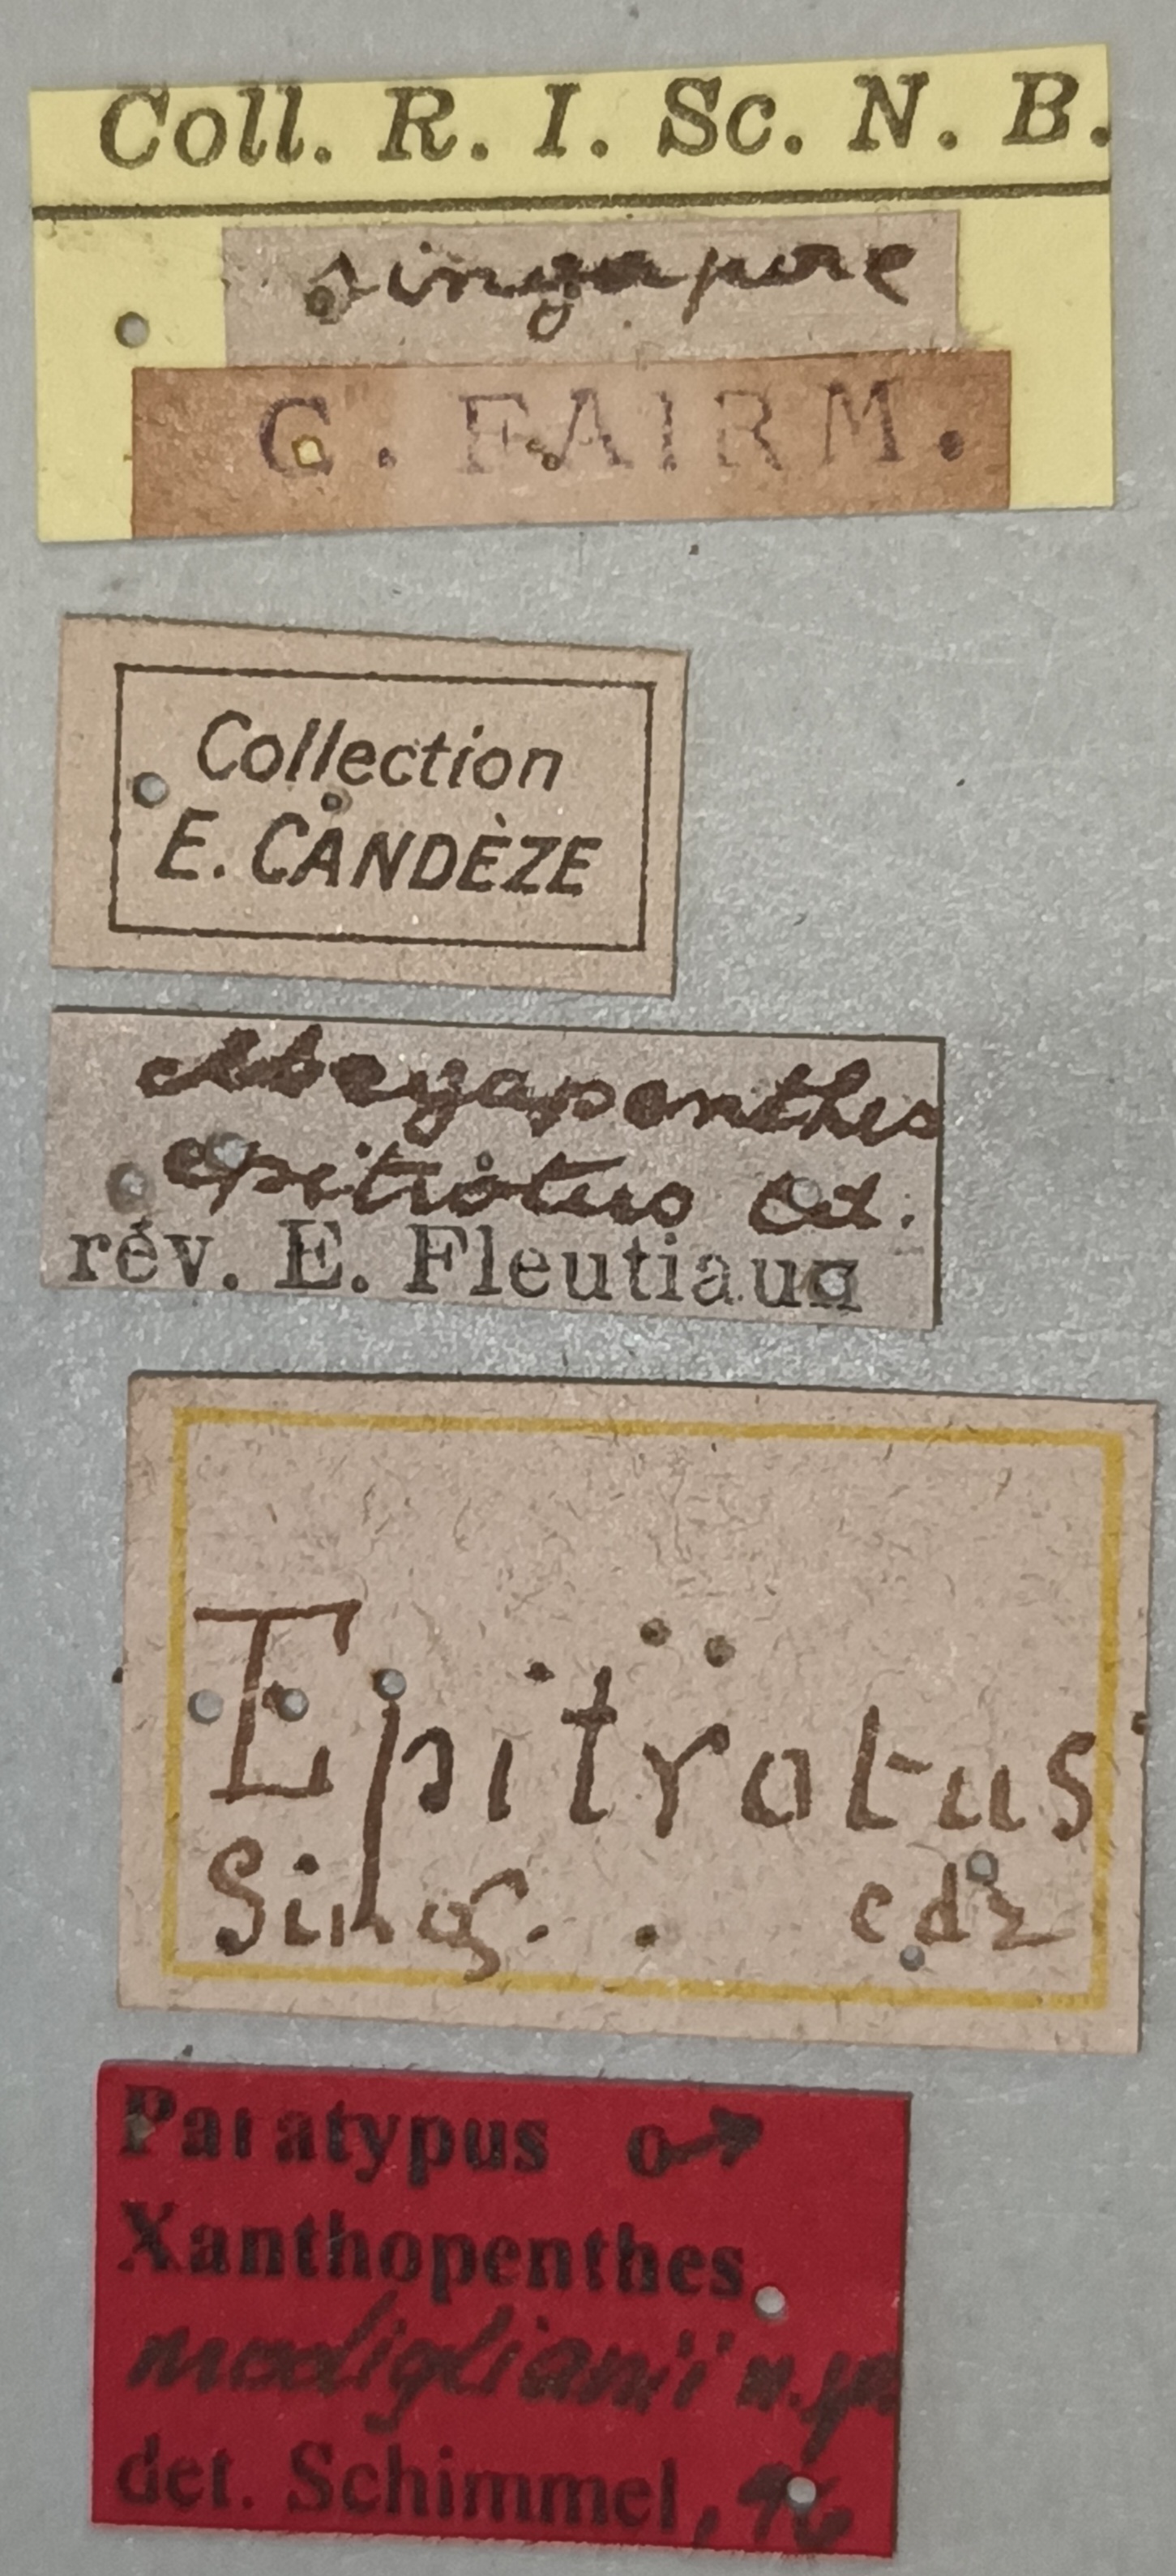 Coll. R. I. Sc. N. B.
singapore
C. FAIRM.
Collection
E. CANDÈZE
Megapenthes
epitrotus Cd.
rév. E. Fleutiaux
Epitrotus
Sing. cdz
Paratypus ♂
Xanthopenthes
modiglianii n.sp.
det. Schimmel, 96